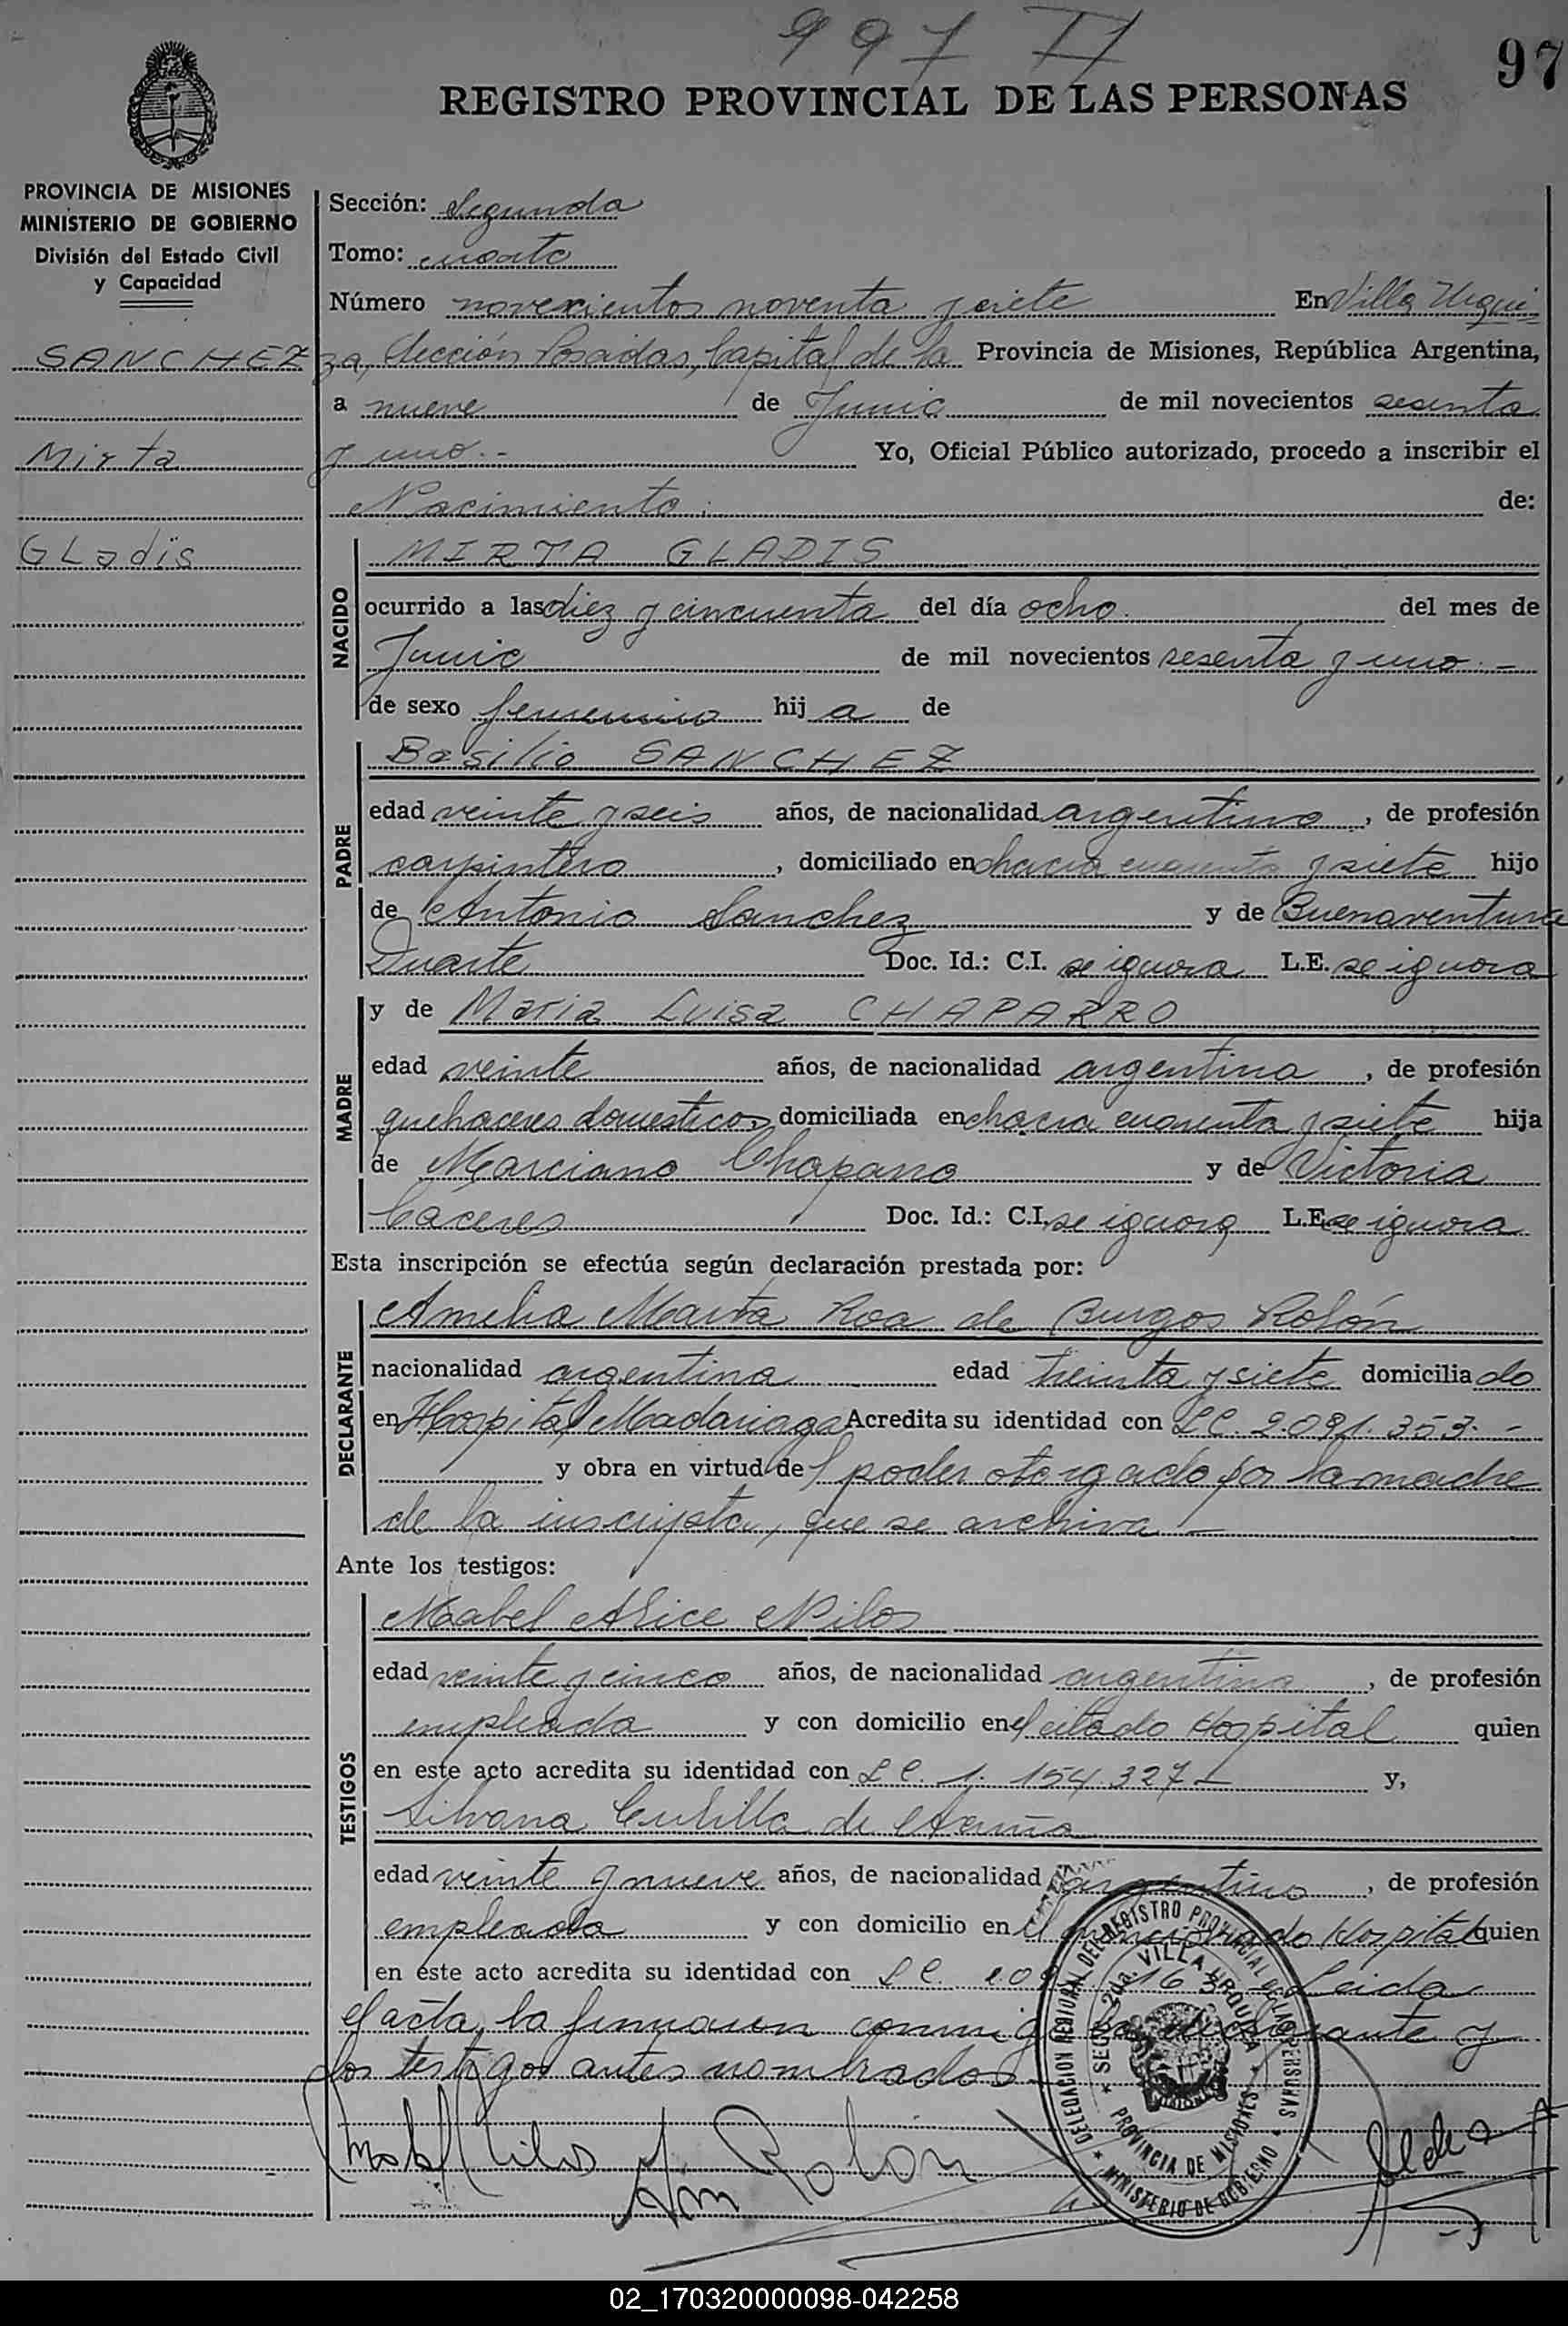 997 II
97
REGISTRO PROVINCIAL DE LAS PERSONAS
PROVINCIA DE MISIONES
MINISTERIO DE GOBIERNO
División del Estado Civil
y Capacidad
SANCHEZ
Mirta
GLadis
Sección: Segunda
Tomo: cuarto
Número novecientos noventa y siete En Villa Urqui
za, Sección Posadas, Capital de la Provincia de Misiones, República Argentina,
a nueve de Junio de mil novecientos sesenta
y uno.- Yo, Oficial Público autorizado, procedo a inscribir el
Nacimiento: de:
NACIDO
MIRTA GLADIS
ocurrido a las diez y cincuenta del día ocho. del mes de
Junio de mil novecientos sesenta y uno.-
de sexo femenino hij a de
PADRE
Basilio SANCHEZ
edad veinte y seis años, de nacionalidad argentino, de profesión
carpintero, domiciliado en chacra cuarenta y siete hijo
de Antonio Sanchez y de Buenaventura
Duarte Doc. Id.: C.I. se ignora L.E. se ignora
MADRE
y de Maria Luisa CHAPARRO
edad veinte años, de nacionalidad argentina, de profesión
quehaceres domesticos domiciliada en chacra cuarenta y siete hija
de Marciano Chaparro y de Victoria
Caceres Doc. Id.: C.I. se ignora L.E. se ignora
Esta inscripción se efectúa según declaración prestada por:
DECLARANTE
Amelia Marta Roa de Burgos Rolón
nacionalidad argentina edad treinta y siete domicilia do
en Hospital Madariaga Acredita su identidad con LC. 2.091.353.-
y obra en virtud del poder otorgado por la madre
de la inscripta, que se archiva.-
Ante los testigos:
TESTIGOS
Mabel Alice Nilos
edad veinte y cinco años, de nacionalidad argentina, de profesión
empleada y con domicilio en el citado Hospital quien
en este acto acredita su identidad con LC. 1.154.327- y,
Silvana Cubilla de Acuña
edad veinte y nueve años, de nacionalidad argentina, de profesión
empleada y con domicilio en el mencionado Hospital quien
en este acto acredita su identidad con LC. Leida
el acta, la firmaron conmigo la declarante y
los testigos antes nombrados
DELEGACION REGIONAL DEL REGISTRO PROVINCIAL DE LAS PERSONAS
SECC. 2da. VILLA URQUIZA
PROVINCIA DE MISIONES
MINISTERIO DE GOBIERNO
Mabel Nilos Am Rolón
02_170320000098-042258